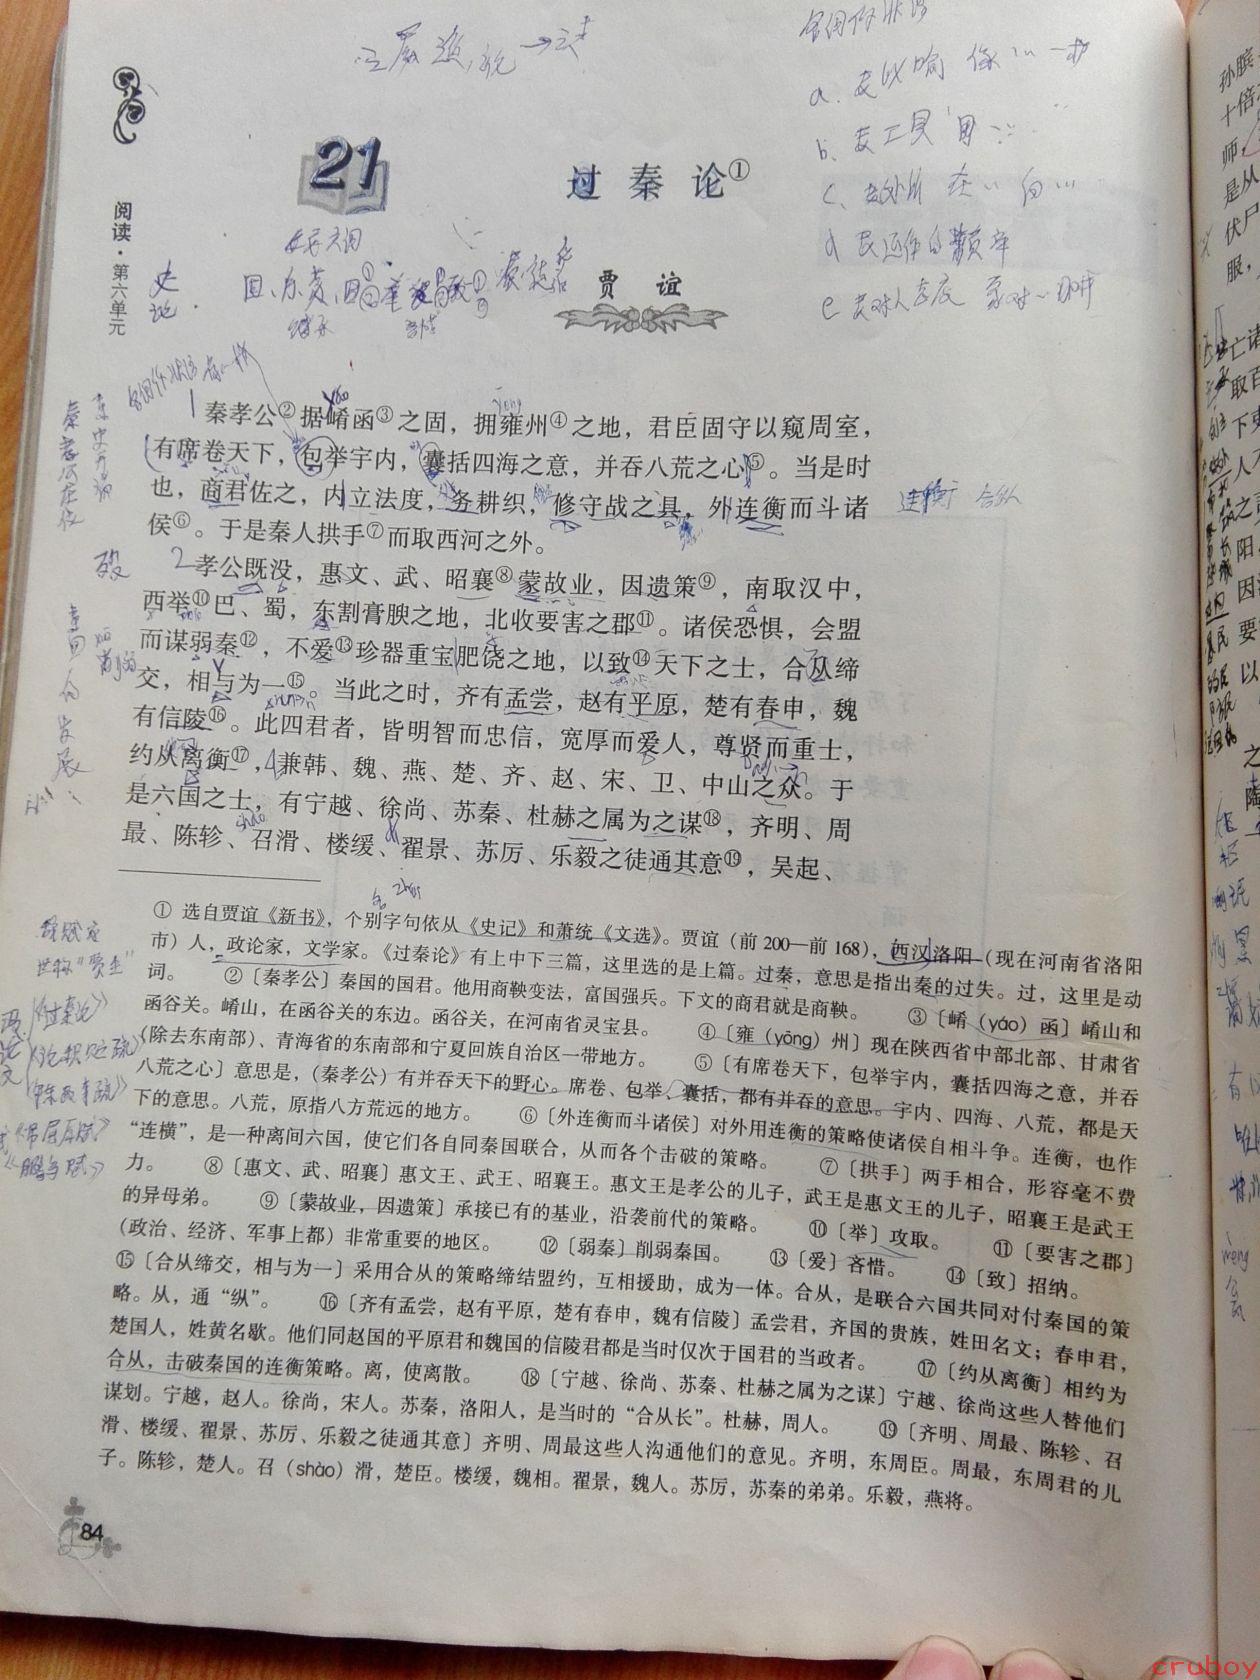 21
过秦论①
贾谊
阅读·第六单元
名词作状语
a.表比喻 像……一样
b.表工具 用……
史论
1 秦孝公②据崤函③之固，拥雍州④之地，君臣固守以窥周室，
有席卷天下，包举宇内，囊括四海之意，并吞八荒之心⑤。当是时
也，商君佐之，内立法度，务耕织，修守战之具，外连衡而斗诸
侯⑥。于是秦人拱手⑦而取西河之外。
连衡 合纵
2 孝公既没，惠文、武、昭襄⑧蒙故业，因遗策⑨，南取汉中，
西举⑩巴、蜀，东割膏腴之地，北收要害之郡⑪。诸侯恐惧，会盟
而谋弱秦⑫，不爱⑬珍器重宝肥饶之地，以致⑭天下之士，合从缔
交，相与为一⑮。当此之时，齐有孟尝，赵有平原，楚有春申，魏
有信陵⑯。此四君者，皆明智而忠信，宽厚而爱人，尊贤而重士，
约从离衡⑰，兼韩、魏、燕、楚、齐、赵、宋、卫、中山之众。于
是六国之士，有宁越、徐尚、苏秦、杜赫之属为之谋⑱，齐明、周
最、陈轸、召滑、楼缓、翟景、苏厉、乐毅之徒通其意⑲，吴起、
① 选自贾谊《新书》，个别字句依从《史记》和萧统《文选》。贾谊（前200—前168），西汉洛阳（现在河南省洛阳
市）人，政论家，文学家。《过秦论》有上中下三篇，这里选的是上篇。过秦，意思是指出秦的过失。过，这里是动
词。 ②〔秦孝公〕秦国的国君。他用商鞅变法，富国强兵。下文的商君就是商鞅。 ③〔崤（yáo）函〕崤山和
函谷关。崤山，在函谷关的东边。函谷关，在河南省灵宝县。 ④〔雍（yōng）州〕现在陕西省中部北部、甘肃省
（除去东南部）、青海省的东南部和宁夏回族自治区一带地方。 ⑤〔有席卷天下，包举宇内，囊括四海之意，并吞
八荒之心〕意思是，（秦孝公）有并吞天下的野心。席卷、包举、囊括，都有并吞的意思。宇内、四海、八荒，都是天
下的意思。八荒，原指八方荒远的地方。 ⑥〔外连衡而斗诸侯〕对外用连衡的策略使诸侯自相斗争。连衡，也作
“连横”，是一种离间六国，使它们各自同秦国联合，从而各个击破的策略。 ⑦〔拱手〕两手相合，形容毫不费
力。 ⑧〔惠文、武、昭襄〕惠文王、武王、昭襄王。惠文王是孝公的儿子，武王是惠文王的儿子，昭襄王是武王
的异母弟。 ⑨〔蒙故业，因遗策〕承接已有的基业，沿袭前代的策略。 ⑩〔举〕攻取。 ⑪〔要害之郡〕
（政治、经济、军事上都）非常重要的地区。 ⑫〔弱秦〕削弱秦国。 ⑬〔爱〕吝惜。 ⑭〔致〕招纳。
⑮〔合从缔交，相与为一〕采用合从的策略缔结盟约，互相援助，成为一体。合从，是联合六国共同对付秦国的策
略。从，通“纵”。 ⑯〔齐有孟尝，赵有平原，楚有春申，魏有信陵〕孟尝君，齐国的贵族，姓田名文；春申君，
楚国人，姓黄名歇。他们同赵国的平原君和魏国的信陵君都是当时仅次于国君的当政者。 ⑰〔约从离衡〕相约为
合从，击破秦国的连衡策略。离，使离散。 ⑱〔宁越、徐尚、苏秦、杜赫之属为之谋〕宁越、徐尚这些人替他们
谋划。宁越，赵人。徐尚，宋人。苏秦，洛阳人，是当时的“合从长”。杜赫，周人。 ⑲〔齐明、周最、陈轸、召
滑、楼缓、翟景、苏厉、乐毅之徒通其意〕齐明、周最这些人沟通他们的意见。齐明，东周臣。周最，东周君的儿
子。陈轸，楚人。召（shào）滑，楚臣。楼缓，魏相。翟景，魏人。苏厉，苏秦的弟弟。乐毅，燕将。
《过秦论》
《论积贮疏》
《陈政事疏》
《吊屈原赋》
84
cruboy